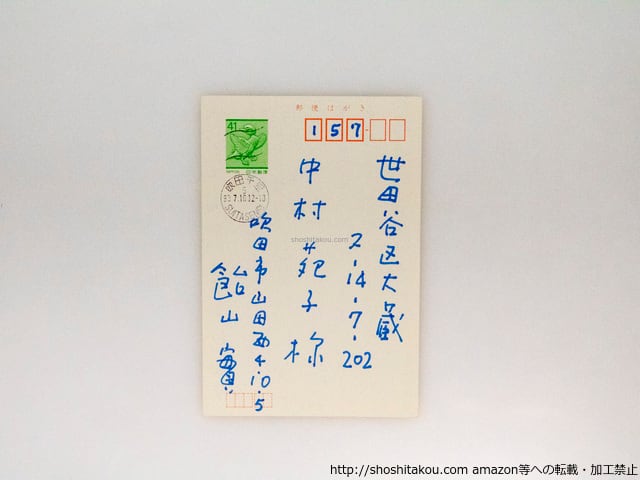 郵便はがき
157
41
NIPPON 日本郵便
吹田千里
93.7.10 12-18
SUITASENRI
世田谷区大蔵
2-14-7-202
中村苑子様
吹田市山田西4-10-5
飴山實
shoshitakou.com
http://shoshitakou.com amazon等への転載・加工禁止